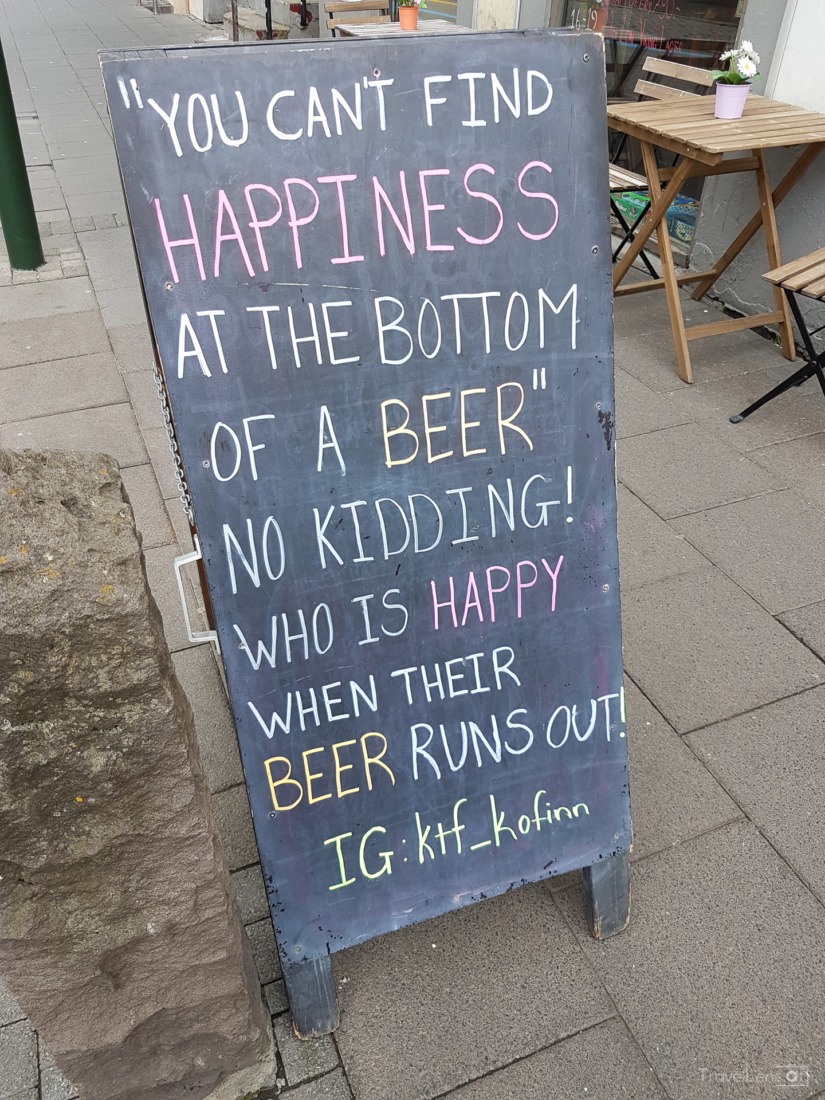 "YOU CAN'T FIND
HAPPINESS
AT THE BOTTOM
OF A BEER"
NO KIDDING!
WHO IS HAPPY
WHEN THEIR
BEER RUNS OUT!
IG: ktf_kofinn
TravelLens